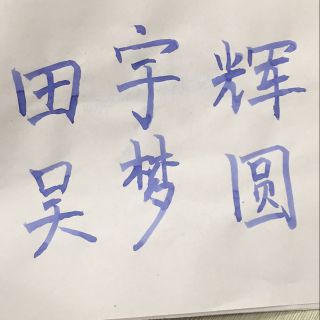 田宇辉
吴梦圆